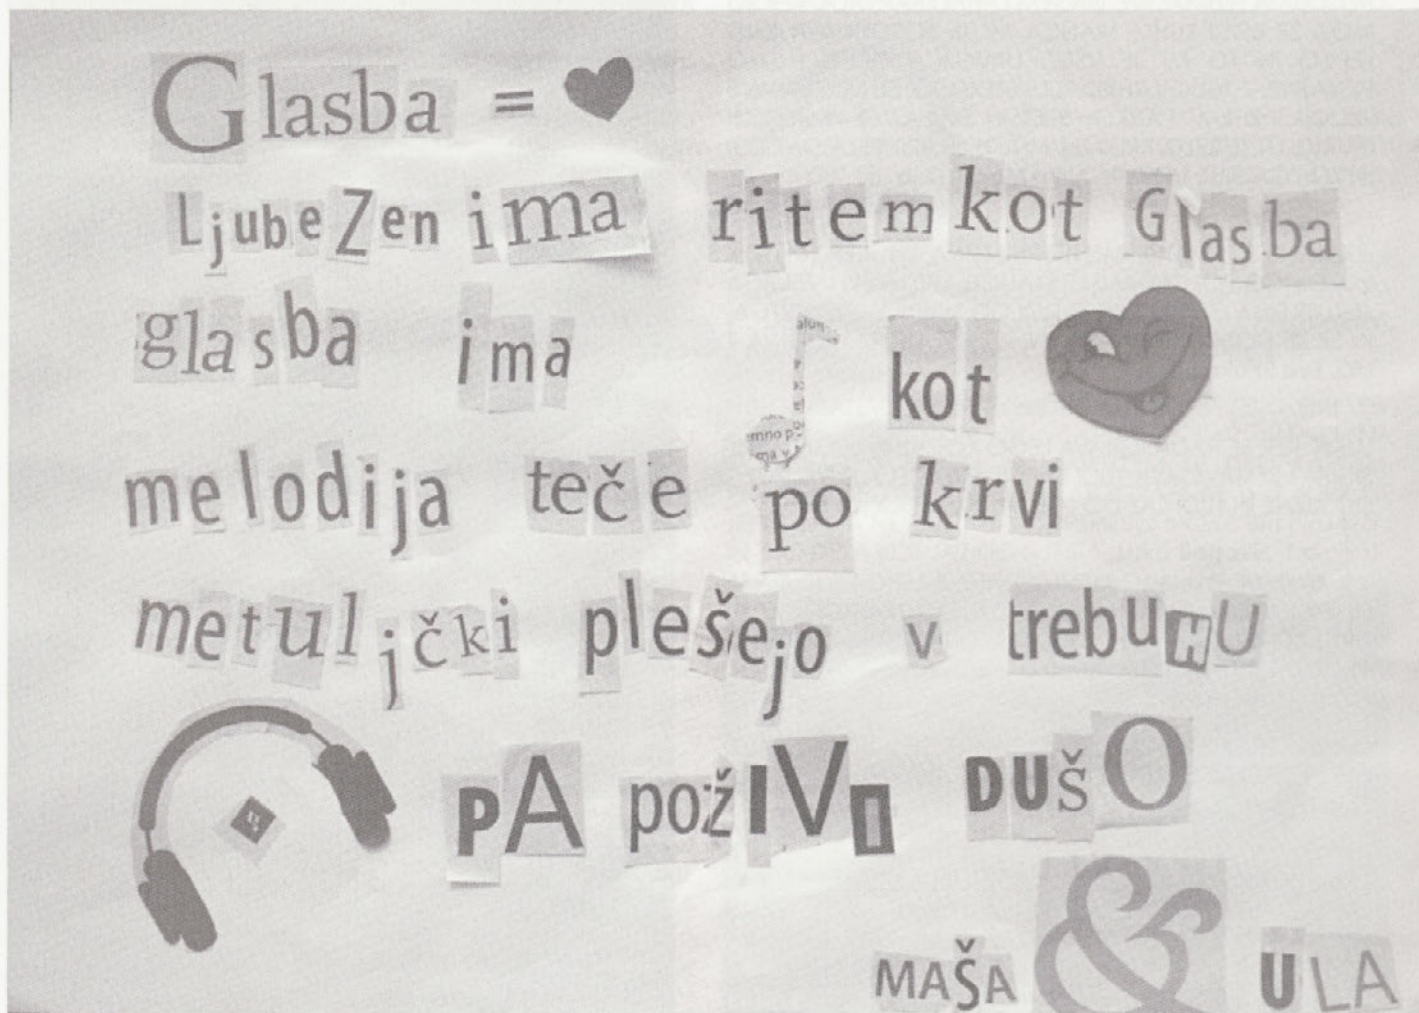 Glasba = ♥
LjubeZen ima ritem kot Glasba
glasba ima ♪ kot ♥
melodija teče po krvi
metuljčki plešejo v trebuHU
PA požIVI DUŠO
MAŠA & ULA